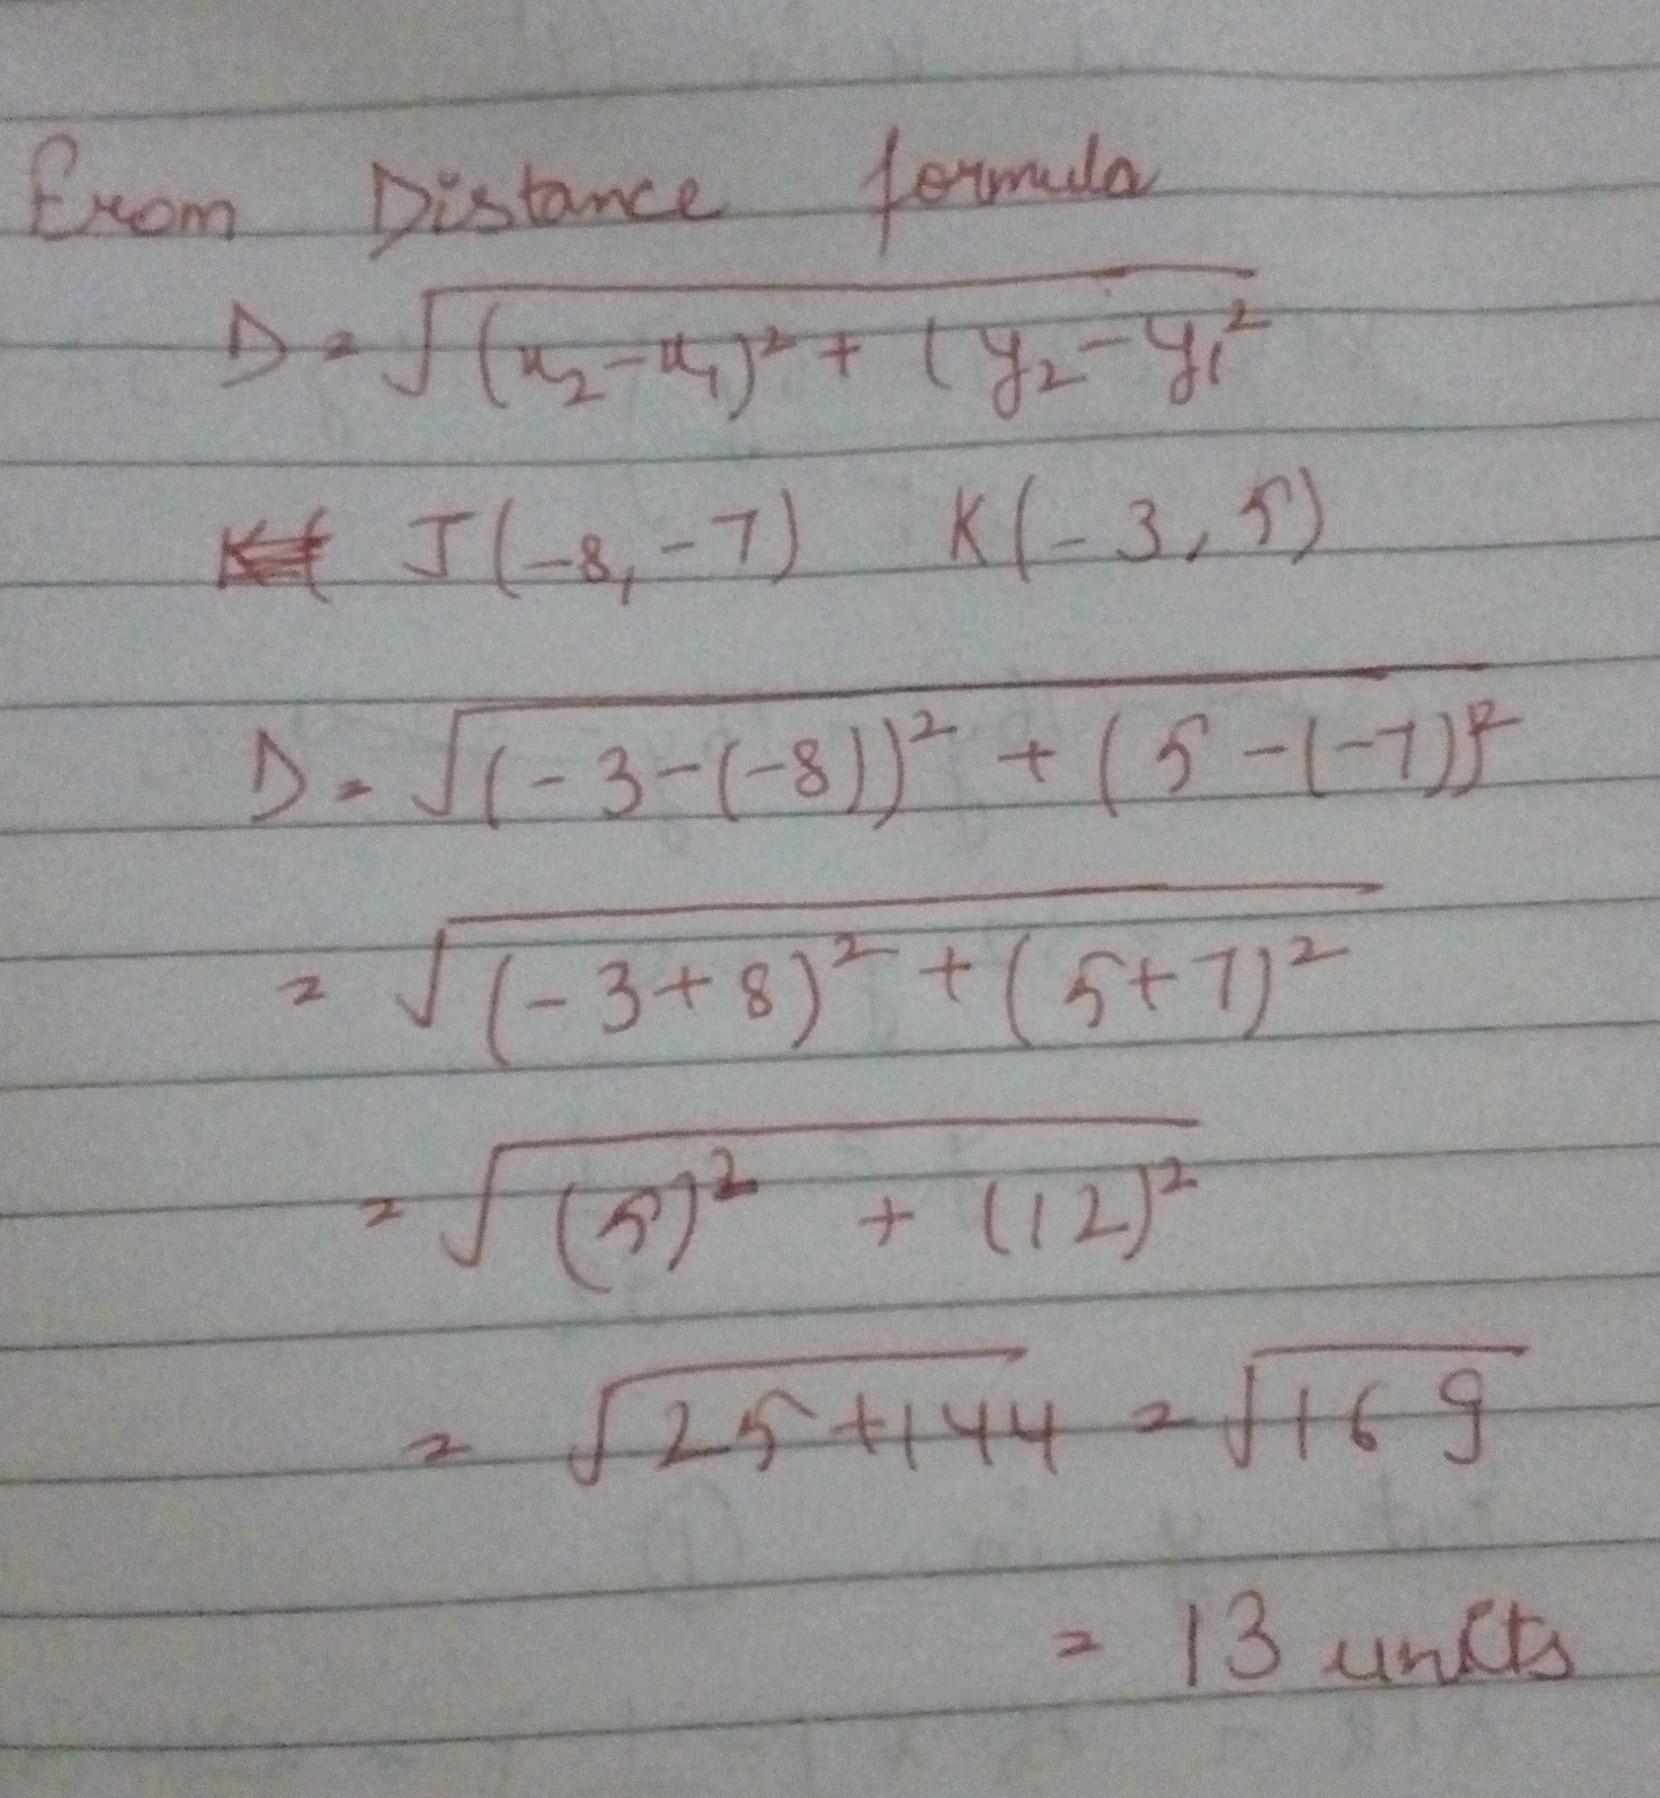 From Distance formula
D = √(x₂-x₁)² + (y₂-y₁²
J(-8, -7) K(-3, 5)
D = √(-3-(-8))² + (5-(-7))²
= √(-3+8)² + (5+7)²
= √(5)² + (12)²
= √25+144 = √169
= 13 units